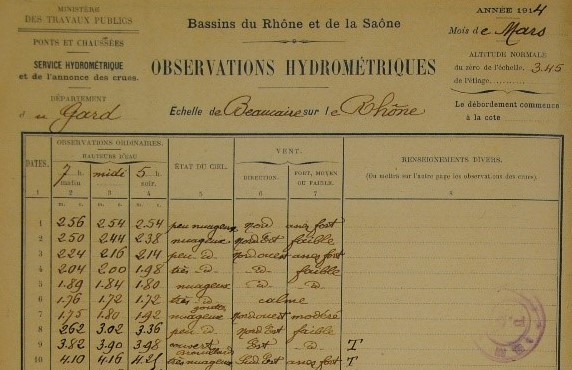 MINISTÈRE
DES TRAVAUX PUBLICS
PONTS ET CHAUSSÉES
SERVICE HYDROMÉTRIQUE
et de l'annonce des crues.
DÉPARTEMENT
d u Gard
Bassins du Rhône et de la Saône
OBSERVATIONS HYDROMÉTRIQUES
Échelle de Beaucaire sur le Rhône
ANNÉE 1914
Mois de Mars
ALTITUDE NORMALE
du zéro de l'échelle, 3.45
de l'étiage
Le débordement commence
à la cote
DATES. OBSERVATIONS ORDINAIRES. ÉTAT DU CIEL. VENT. RENSEIGNEMENTS DIVERS.
HAUTEURS D'EAU (On mettra sur l'autre page les observations des crues).
7 h. matin midi 5 h. soir. DIRECTION. FORT, MOYEN OU FAIBLE.
1 2 3 4 5 6 7 8
m. c. m. c. m. c.
1 2.56 2.54 2.54 peu nuageux Nord assez fort
2 2.50 2.44 2.38 nuageux Nord Est faible
3 2.24 2.16 2.14 peu d° Nord ouest assez fort
4 2.04 2.00 1.98 très d° d° faible
5 1.89 1.84 1.80 nuageux d° d°
6 1.76 1.72 1.72 très d° calme
7 1.75 1.80 1.92 nuageux Nord ouest modéré
8 2.62 3.02 3.36 peu d° Nord Est faible
9 3.82 3.90 3.98 couvert Est d° T
10 4.10 4.16 4.25 très nuageux Sud Est assez fort T